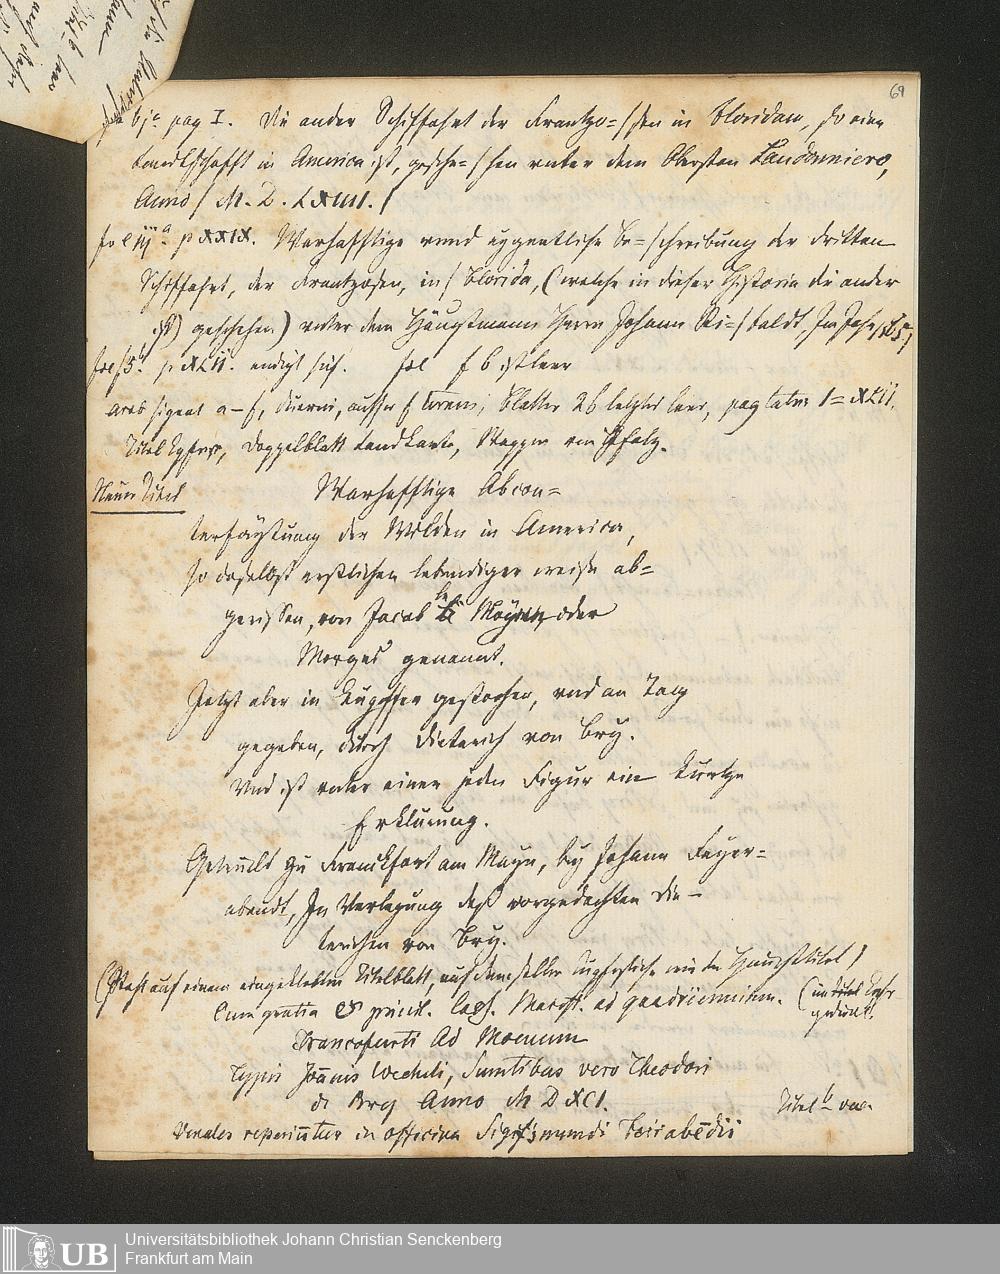 69
bjᵃ pag I. Die ander Schiffahrt der Frantzo=/sen in Floridam, so eine
Landtschafft in America ist, gesche=/hen unter dem Obersten Laudonniero,
Anno / M. D. LXIIII. /
fol iijᵃ p XXIX. Warhafftige unnd eygentliche Be=/schreibung der dritten
Schiffahrt, der Frantzosen, in / Florida, (welche in dieser Historia die ander
ist) geschehen) unter dem Hauptmann Herrn Johann Ri=/baldt, Im Jahr 1565 /
p XLII. endigt sich. fol f 6 ist leer
Signat a–f, außer f; Blätter 26 letztes leer, pag 1=XLII.
Titel Kpfer, Doppelblatt Landkarte, Wappen von Pfalz.
Neuer Titel
Warhafftige Abcon=
terfaytung der Wilden in America,
so daselbst erstlichen lebendiger weise ab=
gerissen, von Jacob le Moyne oder
Morgues genannt.
Jetzt aber in Kupffer gestochen, und an Tag
gegeben, durch Dieterich von Bry.
Und ist unter einer jeden Figur ein kurtze
Erklärung.
Getruckt zu Franckfort am Mayn, by Johann Feyer=
abendt, In Verlegung deß vorgedachten Die–
terichen von Bry.
(Steht auf einem eingeklebten Titelblatt, auf demselben Kupferstiche wie der Haupttitel)
Cum gratia & privil. Caes. Maiest. ad quadriennium. (im Titel Kpfr.
gedruckt.
Francoforti Ad Moenum
Typis Joānis Wecheli, Sumtibus vero Theodori
de Bry Anno M D XCI.
Titel b vac.
Venales reperiūtur in officina Sigismundi Feirabēdii
UB
Universitätsbibliothek Johann Christian Senckenberg
Frankfurt am Main